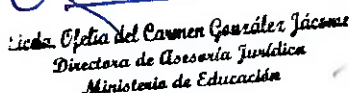 Licda. Ofelia del Carmen González Jácome
Directora de Asesoría Jurídica
Ministerio de Educación